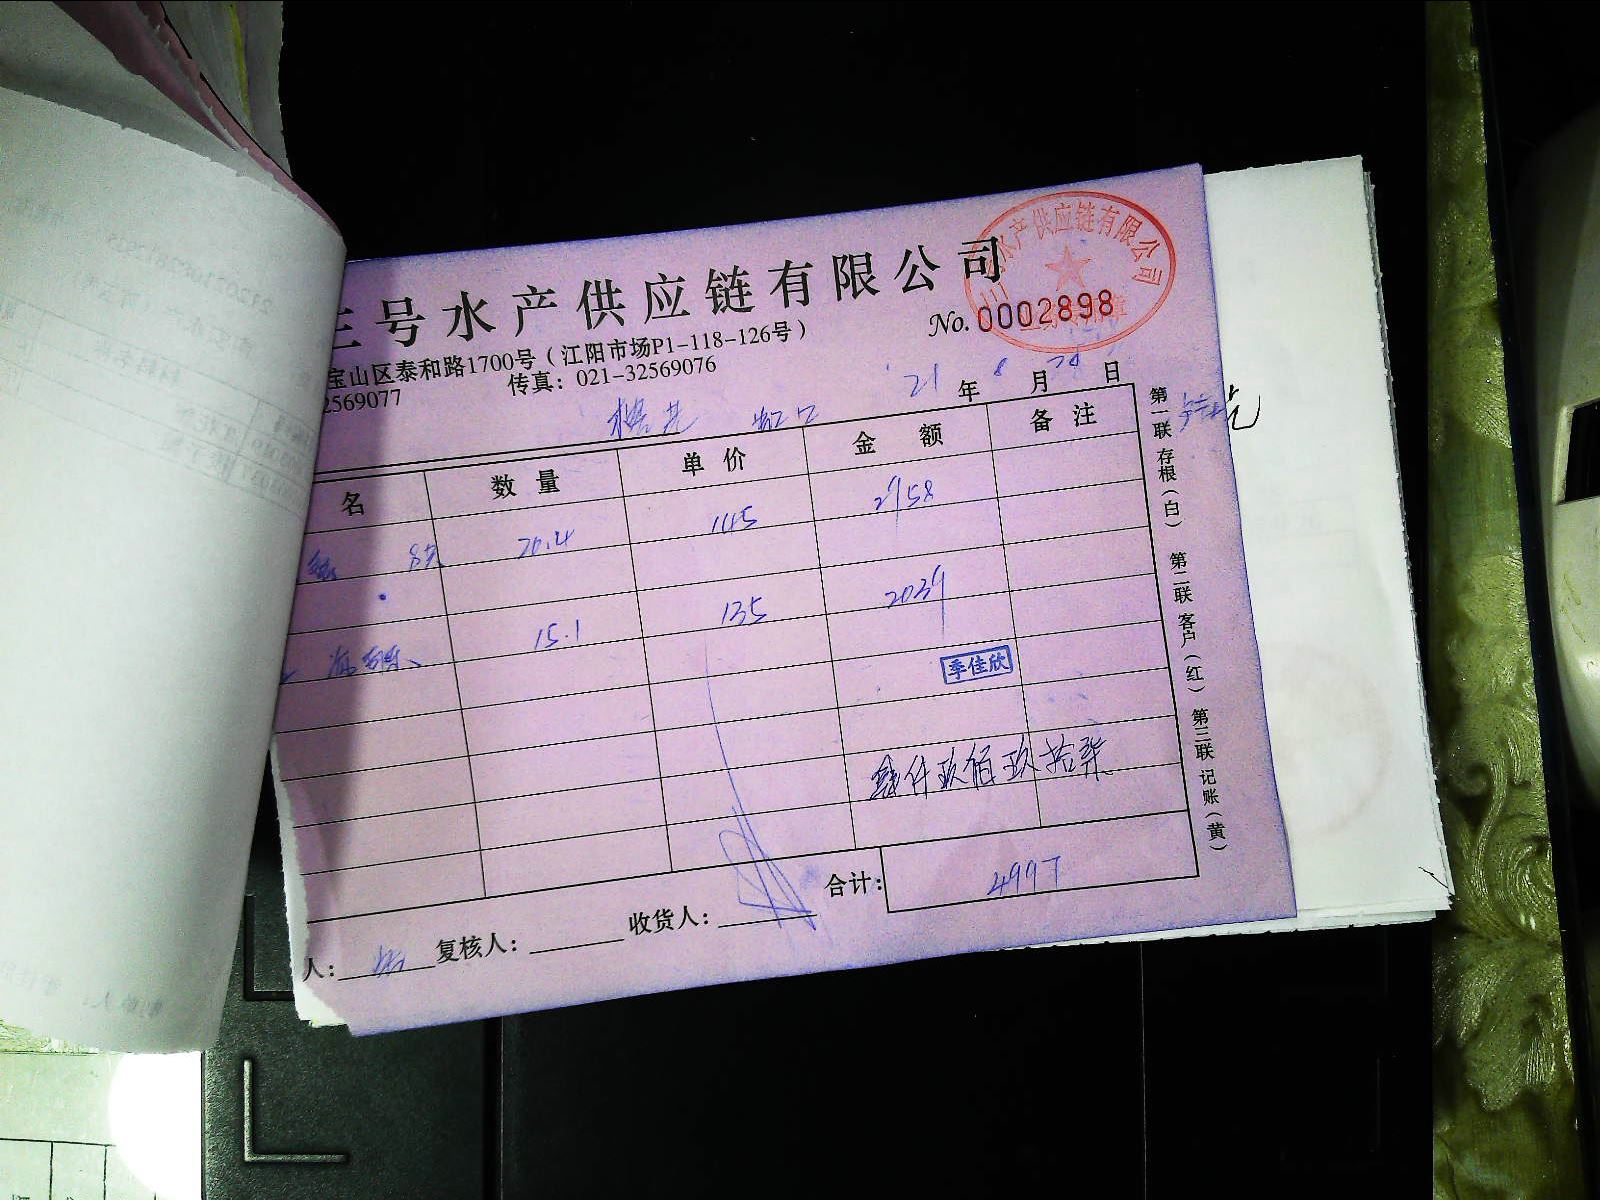 三号水产供应链有限公司
水产供应链有限公司
No. 0002898
宝山区泰和路1700号（江阳市场P1-118-126号）
2569077 传真：021-32569076
21 年 8 月 日
虹口
名 数量 单价 金额 备注
20.4 145 2958
15.1 135 2039
季佳欣
肆仟玖佰玖拾柒
合计： 4997
人： 复核人： 收货人：
第一联 存根（白） 第二联 客户（红） 第三联 记账（黄）